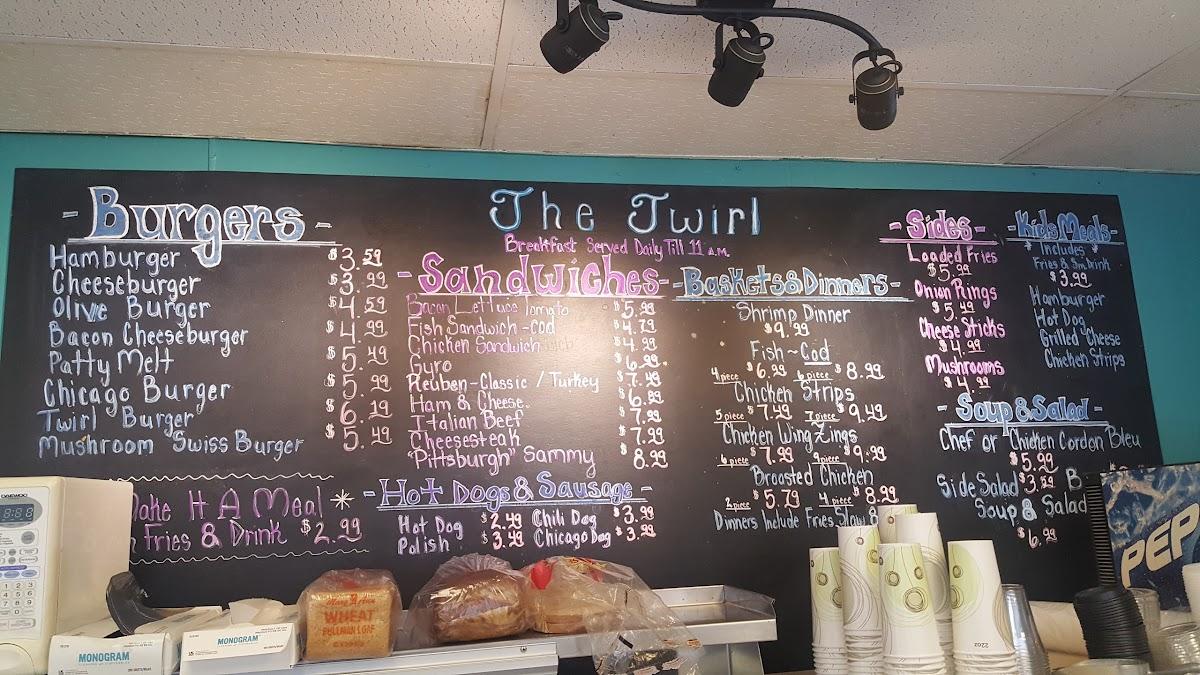 The Twirl
Breakfast Served Daily Till 11 A.M.
- Burgers -
Hamburger $3.59
Cheeseburger $3.99
Olive Burger $4.59
Bacon Cheeseburger $4.99
Patty Melt $5.49
Chicago Burger $5.99
Twirl Burger $6.19
Mushroom Swiss Burger $5.49
Make It A Meal
Fries & Drink $2.99
- Sandwiches -
Bacon Lettuce Tomato $5.99
Fish Sandwich - Cod $4.79
Chicken Sandwich $4.99
Gyro $6.99
Reuben - Classic / Turkey $7.49
Ham & Cheese $6.99
Italian Beef $7.99
Cheesesteak $7.99
"Pittsburgh" Sammy $8.99
- Hot Dogs & Sausage -
Hot Dog $2.49 Chili Dog $3.99
Polish $3.49 Chicago Dog $3.99
- Baskets & Dinners -
Shrimp Dinner
$9.99
Fish - Cod
4 piece $6.99 6 piece $8.99
Chicken Strips
5 piece $7.49 7 piece $9.49
Chicken Wing Zings
6 piece $7.99 9 piece $9.99
Broasted Chicken
2 piece $5.79 4 piece $8.99
Dinners Include Fries, Slaw &
- Sides -
Loaded Fries
$5.99
Onion Rings
$5.49
Cheese Sticks
$4.99
Mushrooms
$4.99
- Kids Meals -
* Includes *
Fries & Sm. Drink
$3.99
Hamburger
Hot Dog
Grilled Cheese
Chicken Strips
- Soup & Salad -
Chef or Chicken Cordon Bleu
$5.99
Side Salad $3.59 B
Soup & Salad
$6.99
DAEWOO
MONOGRAM
MONOGRAM
WHEAT
PULLMAN LOAF
22oz
PEP